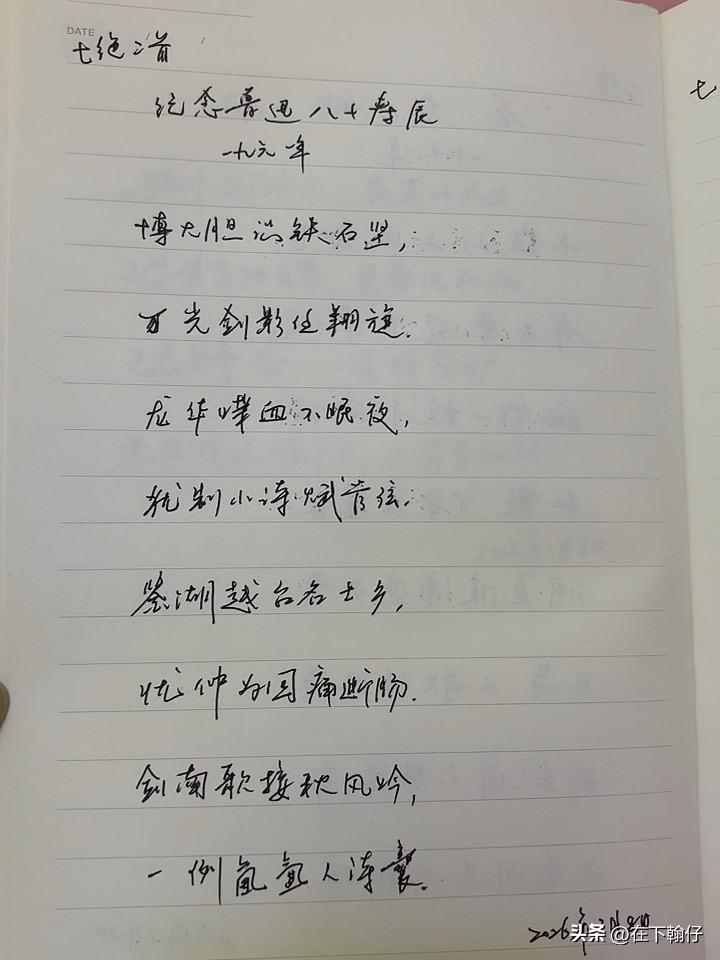 DATE
七绝二首
七
纪念鲁迅八十寿辰
一九六一年
博大胆识铁石坚，
刀光剑影任翔旋。
龙华喋血不眠夜，
犹制小诗赋管弦。
鉴湖越台名士乡，
忧忡为国痛断肠。
剑南歌接秋风吟，
一例氤氲入诗囊。
2026年2月
头条 @在下翰仔